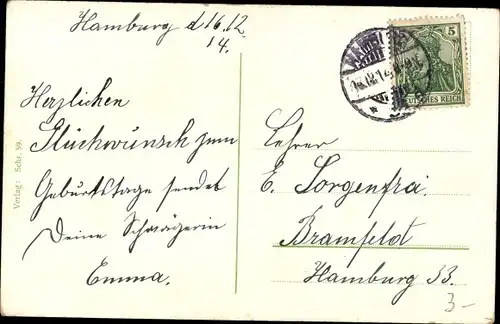 Hamburg d 16.12.
14.
Herzlichen
Glückwünsch zum
Geburtstage sendet
Deine Schwägerin
Emma.
Verlag: Schr. 59.
5
DEUTSCHES REICH
Lehrer
E. Sorgenfrei
Bramfeldt
Hamburg 33.
3-